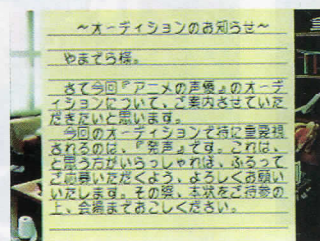 ～オーディションのお知らせ～
やまでら様。
さて今回『アニメの声優』のオーデ
ィションについて、ご案内させていた
だきたいと思います。
今回のオーディションで特に重要視
されるのは、『発声』です。これは、
と思う方がいらっしゃれば、ふるって
ご応募いただくよう、よろしくお願い
いたします。その際、本状をご持参の
上、会場までおこしください。